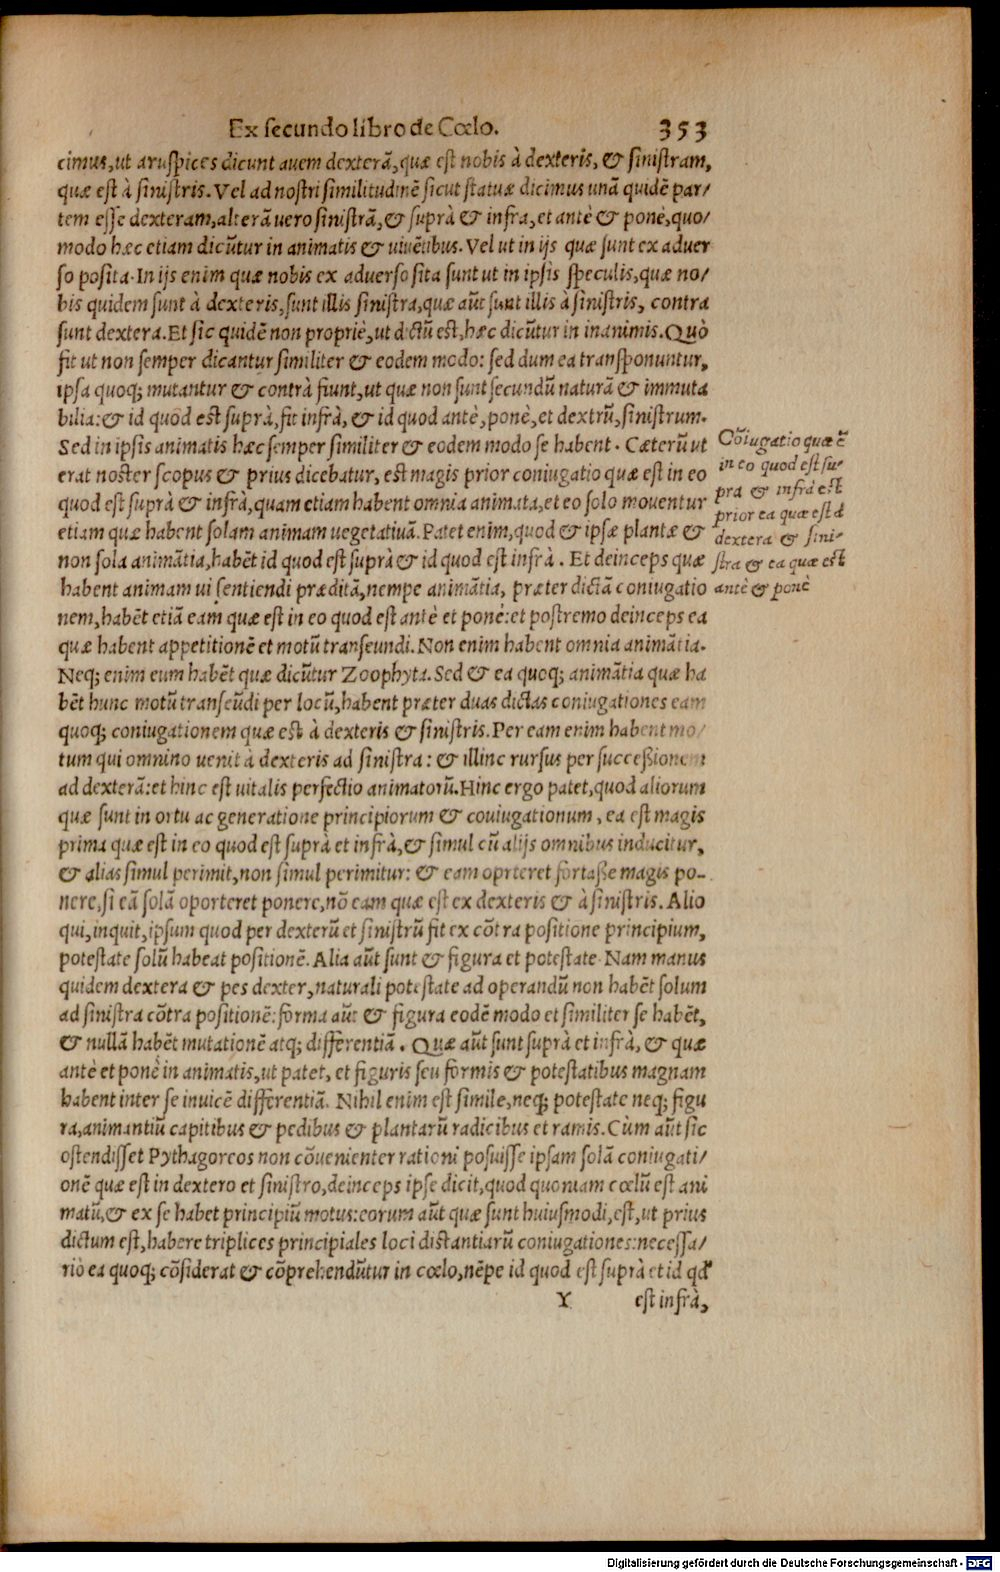 Ex secundo libro de Cœlo. 353
cimus, ut aruspices dicunt auem dexterā, quæ est nobis à dexteris, & sinistram,
quæ est à sinistris. Vel ad nostri similitudinē sicut statuæ dicimus unā quidē par/
tem esse dexteram, alterā uero sinistrā, & suprà & infra, et antè & ponè, quo/
modo hæc etiam dicūtur in animatis & uiuētibus. Vel ut in ijs quæ sunt ex aduer
so posita. In ijs enim quæ nobis ex aduerso sita sunt ut in ipsis speculis, quæ no/
bis quidem sunt à dexteris, sunt illis sinistra, quæ aūt sunt illis à sinistris, contra
sunt dextera. Et sic quidē non propriè, ut dictū est, hæc dicūtur in inanimis. Quò
fit ut non semper dicantur similiter & eodem modo: sed dum ea transponuntur,
ipsa quoq; mutantur & contrà fiunt, ut quæ non sunt secundū naturā & immuta
bilia: & id quod est suprà, fit infrà, & id quod antè, ponè, et dextrū, sinistrum.
Sed in ipsis animatis hæc semper similiter & eodem modo se habent. Cæterū ut
erat noster scopus & prius dicebatur, est magis prior coniugatio quæ est in eo
quod est suprà & infrà, quam etiam habent omnia animata, et eo solo mouentur
etiam quæ habent solam animam uegetatiuā. Patet enim, quod & ipsæ plantæ &
non sola animātia, habēt id quod est suprà & id quod est infrà. Et deinceps quæ
habent animam ui sentiendi præditā, nempe animātia, præter dictā coniugatio
nem, habēt etiā eam quæ est in eo quod est antè et ponè: et postremo deinceps ea
quæ habent appetitionē et motū transeundi. Non enim habent omnia animātia.
Neq; enim eum habēt quæ dicūtur Zoophyta. Sed & ea quoq; animātia quæ ha
bēt hunc motū transeūdi per locū, habent præter duas dictas coniugationes eam
quoq; coniugationem quæ est à dexteris & sinistris. Per eam enim habent mo/
tum qui omnino uenit à dexteris ad sinistra: & illinc rursus per successionem
ad dexterā: et hinc est uitalis perfectio animatorū. Hinc ergo patet, quod aliorum
quæ sunt in ortu ac generatione principiorum & couiugationum, ea est magis
prima quæ est in eo quod est suprà et infrà, & simul cū alijs omnibus inducitur,
& alias simul perimit, non simul perimitur: & eam oprteret fortasse magis po-
nere, si eā solā oporteret ponere, nō eam quæ est ex dexteris & à sinistris. Alio
qui, inquit, ipsum quod per dexterū et sinistrū fit ex cōtra positione principium,
potestate solū habeat positionē. Alia aūt sunt & figura et potestate. Nam manus
quidem dextera & pes dexter, naturali potestate ad operandū non habēt solum
ad sinistra cōtra positionē: forma aūt & figura eodē modo et similiter se habēt,
& nullā habēt mutationē atq; differentiā. Quæ aūt sunt suprà et infrà, & quæ
antè et ponè in animatis, ut patet, et figuris seu formis & potestatibus magnam
habent inter se inuicē differentiā. Nihil enim est simile, neq; potestate neq; figu
ra, animantiū capitibus & pedibus & plantarū radicibus et ramis. Cùm aūt sic
ostendisset Pythagoreos non cōuenienter rationi posuisse ipsam solā coniugati/
onē quæ est in dextero et sinistro, deinceps ipse dicit, quod quoniam cœlū est ani
matū, & ex se habet principiū motus: eorum aūt quæ sunt huiusmodi, est, ut prius
dictum est, habere triplices principiales loci distantiarū coniugationes: necessa/
riò ea quoq; cōsiderat & cōprehendūtur in cœlo, nēpe id quod est suprà et id qđ
Y est infrà,
Cōiugatio quæ ē
in eo quod est su-
pra & infra est
prior ea quæ est à
dextera & sini-
stra & ea quæ est
antè & ponè
Digitalisierung gefördert durch die Deutsche Forschungsgemeinschaft - DFG